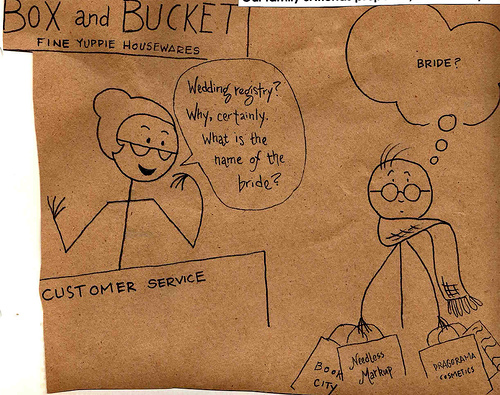 BOX and BUCKET
FINE YUPPIE HOUSEWARES
Wedding registry?
Why, certainly.
What is the
name of the
bride?
BRIDE?
CUSTOMER SERVICE
BOOK
CITY
Needless
Markup
DRAGORAMA
COSMETICS